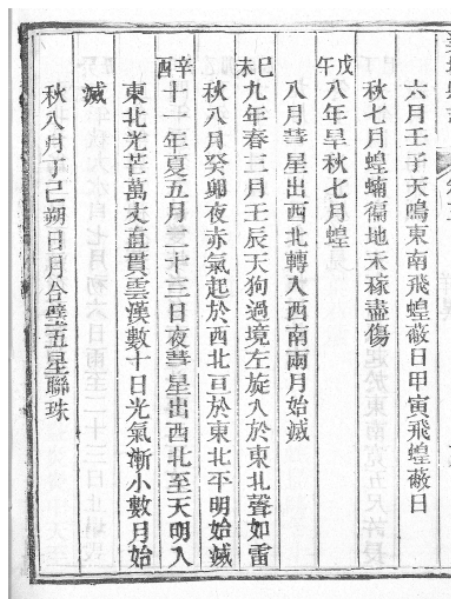 六月壬子天鳴東南飛蝗蔽日甲寅飛蝗蔽日
秋七月蝗蝻徧地禾稼盡傷
戊午八年旱秋七月蝗
八月彗星出西北轉入西南兩月始滅
己未九年春三月壬辰天狗過境左旋入於東北聲如雷
秋八月癸卯夜赤氣起於西北亘於東北平明始滅
辛酉十一年夏五月二十三日夜彗星出西北至天明入
東北光芒萬丈直貫雲漢數十日光氣漸小數月始
滅
秋八月丁巳朔日月合璧五星聯珠